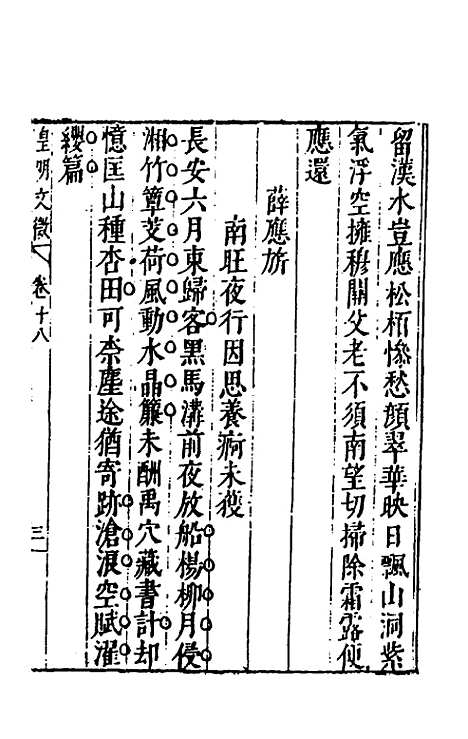 留漢水豈應松栢慘愁顔翠華映日飄山洞紫
氣浮空擁稷關父老不須南望切掃除霜露便
應還
薛應旂
南旺夜行因思養痾未獲
長安六月東歸客黑馬溝前夜放船楊柳月侵
湘竹簟芰荷風動水晶簾未酬禹穴藏書計却
憶匡山種杏田可柰塵途猶寄跡滄浪空賦濯
纓篇
皇明文徵 卷十八 三